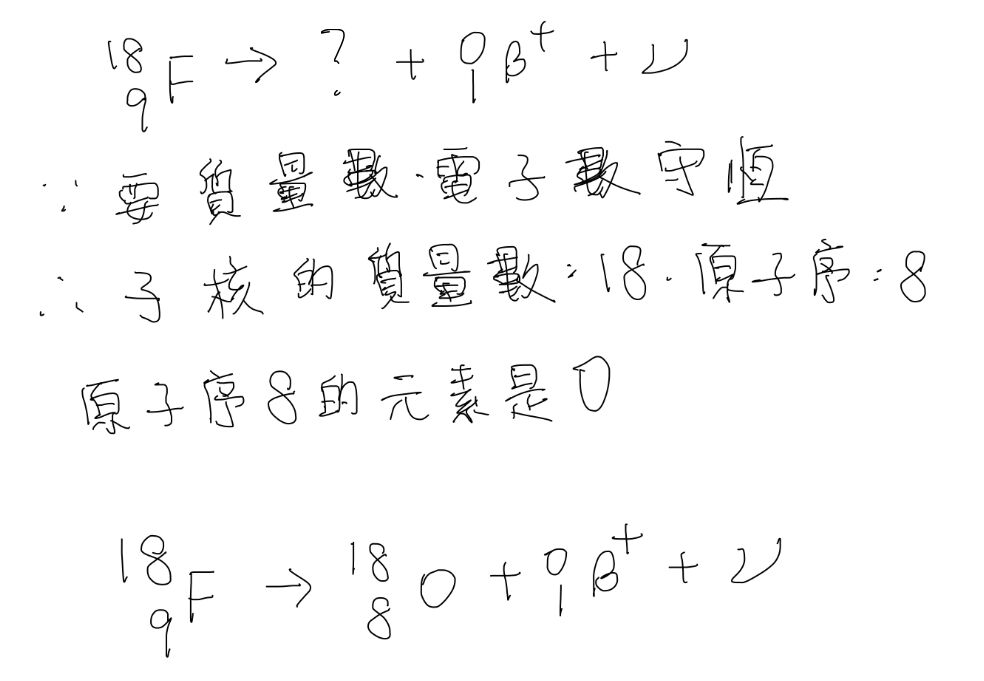 ¹⁸₉F → ? + ⁰₁β⁺ + ν
∵ 要質量數、電子數守恆
∴ 子核的質量數:18、原子序:8
原子序8的元素是O
¹⁸₉F → ¹⁸₈O + ⁰₁β⁺ + ν